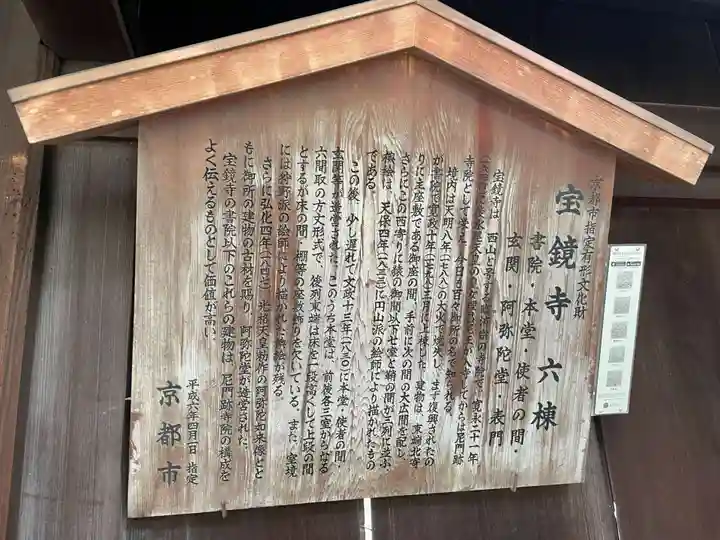 京都市指定有形文化財
宝鏡寺 六棟
書院・本堂・使者の間・
玄関・阿弥陀堂・表門
宝鏡寺は、西山と号する臨済宗の寺院で、寛永二十一年
寺院として栄え、今日も百々御所の名で知られる。
境内は天明八年(一七八八)の大火で焼失し、まず復興されたの
が書院で寛政十年(一七九八)三月に上棟した。建物は、東端北寺
りに主座敷である御座の間、手前に次の間の大広間を配し、
さらにこの西寄りに猿の御間以下七室と鞘の間が二列に並ぶ。
襖絵は、天保四年(一八三三)に円山派の絵師により描かれたもの
である。
この後、少し遅れて文政十三年(一八三〇)に本堂・使者の間・
玄関等が造営された。このうち本堂は、前後各三室からなる
六間取の方丈形式で、後列東端は床を一段高くして上段の間
とするが床の間・棚等の座敷飾りを欠いている。また、室境
には狩野派の絵師により描かれた襖絵が残る。
さらに弘化四年(一八四七)、光格天皇勅作の阿弥陀如来像とと
もに御所の建物の古材を賜り、阿弥陀堂が造営された。
宝鏡寺の書院以下のこれらの建物は、尼門跡寺院の構成を
よく伝えるものとして価値が高い。
平成六年四月一日 指定
京都市